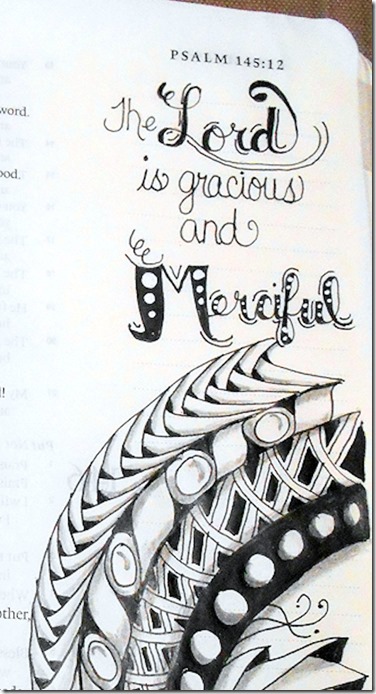 PSALM 145:12
The Lord
is gracious
and
Merciful
word.
ood.
!
other,